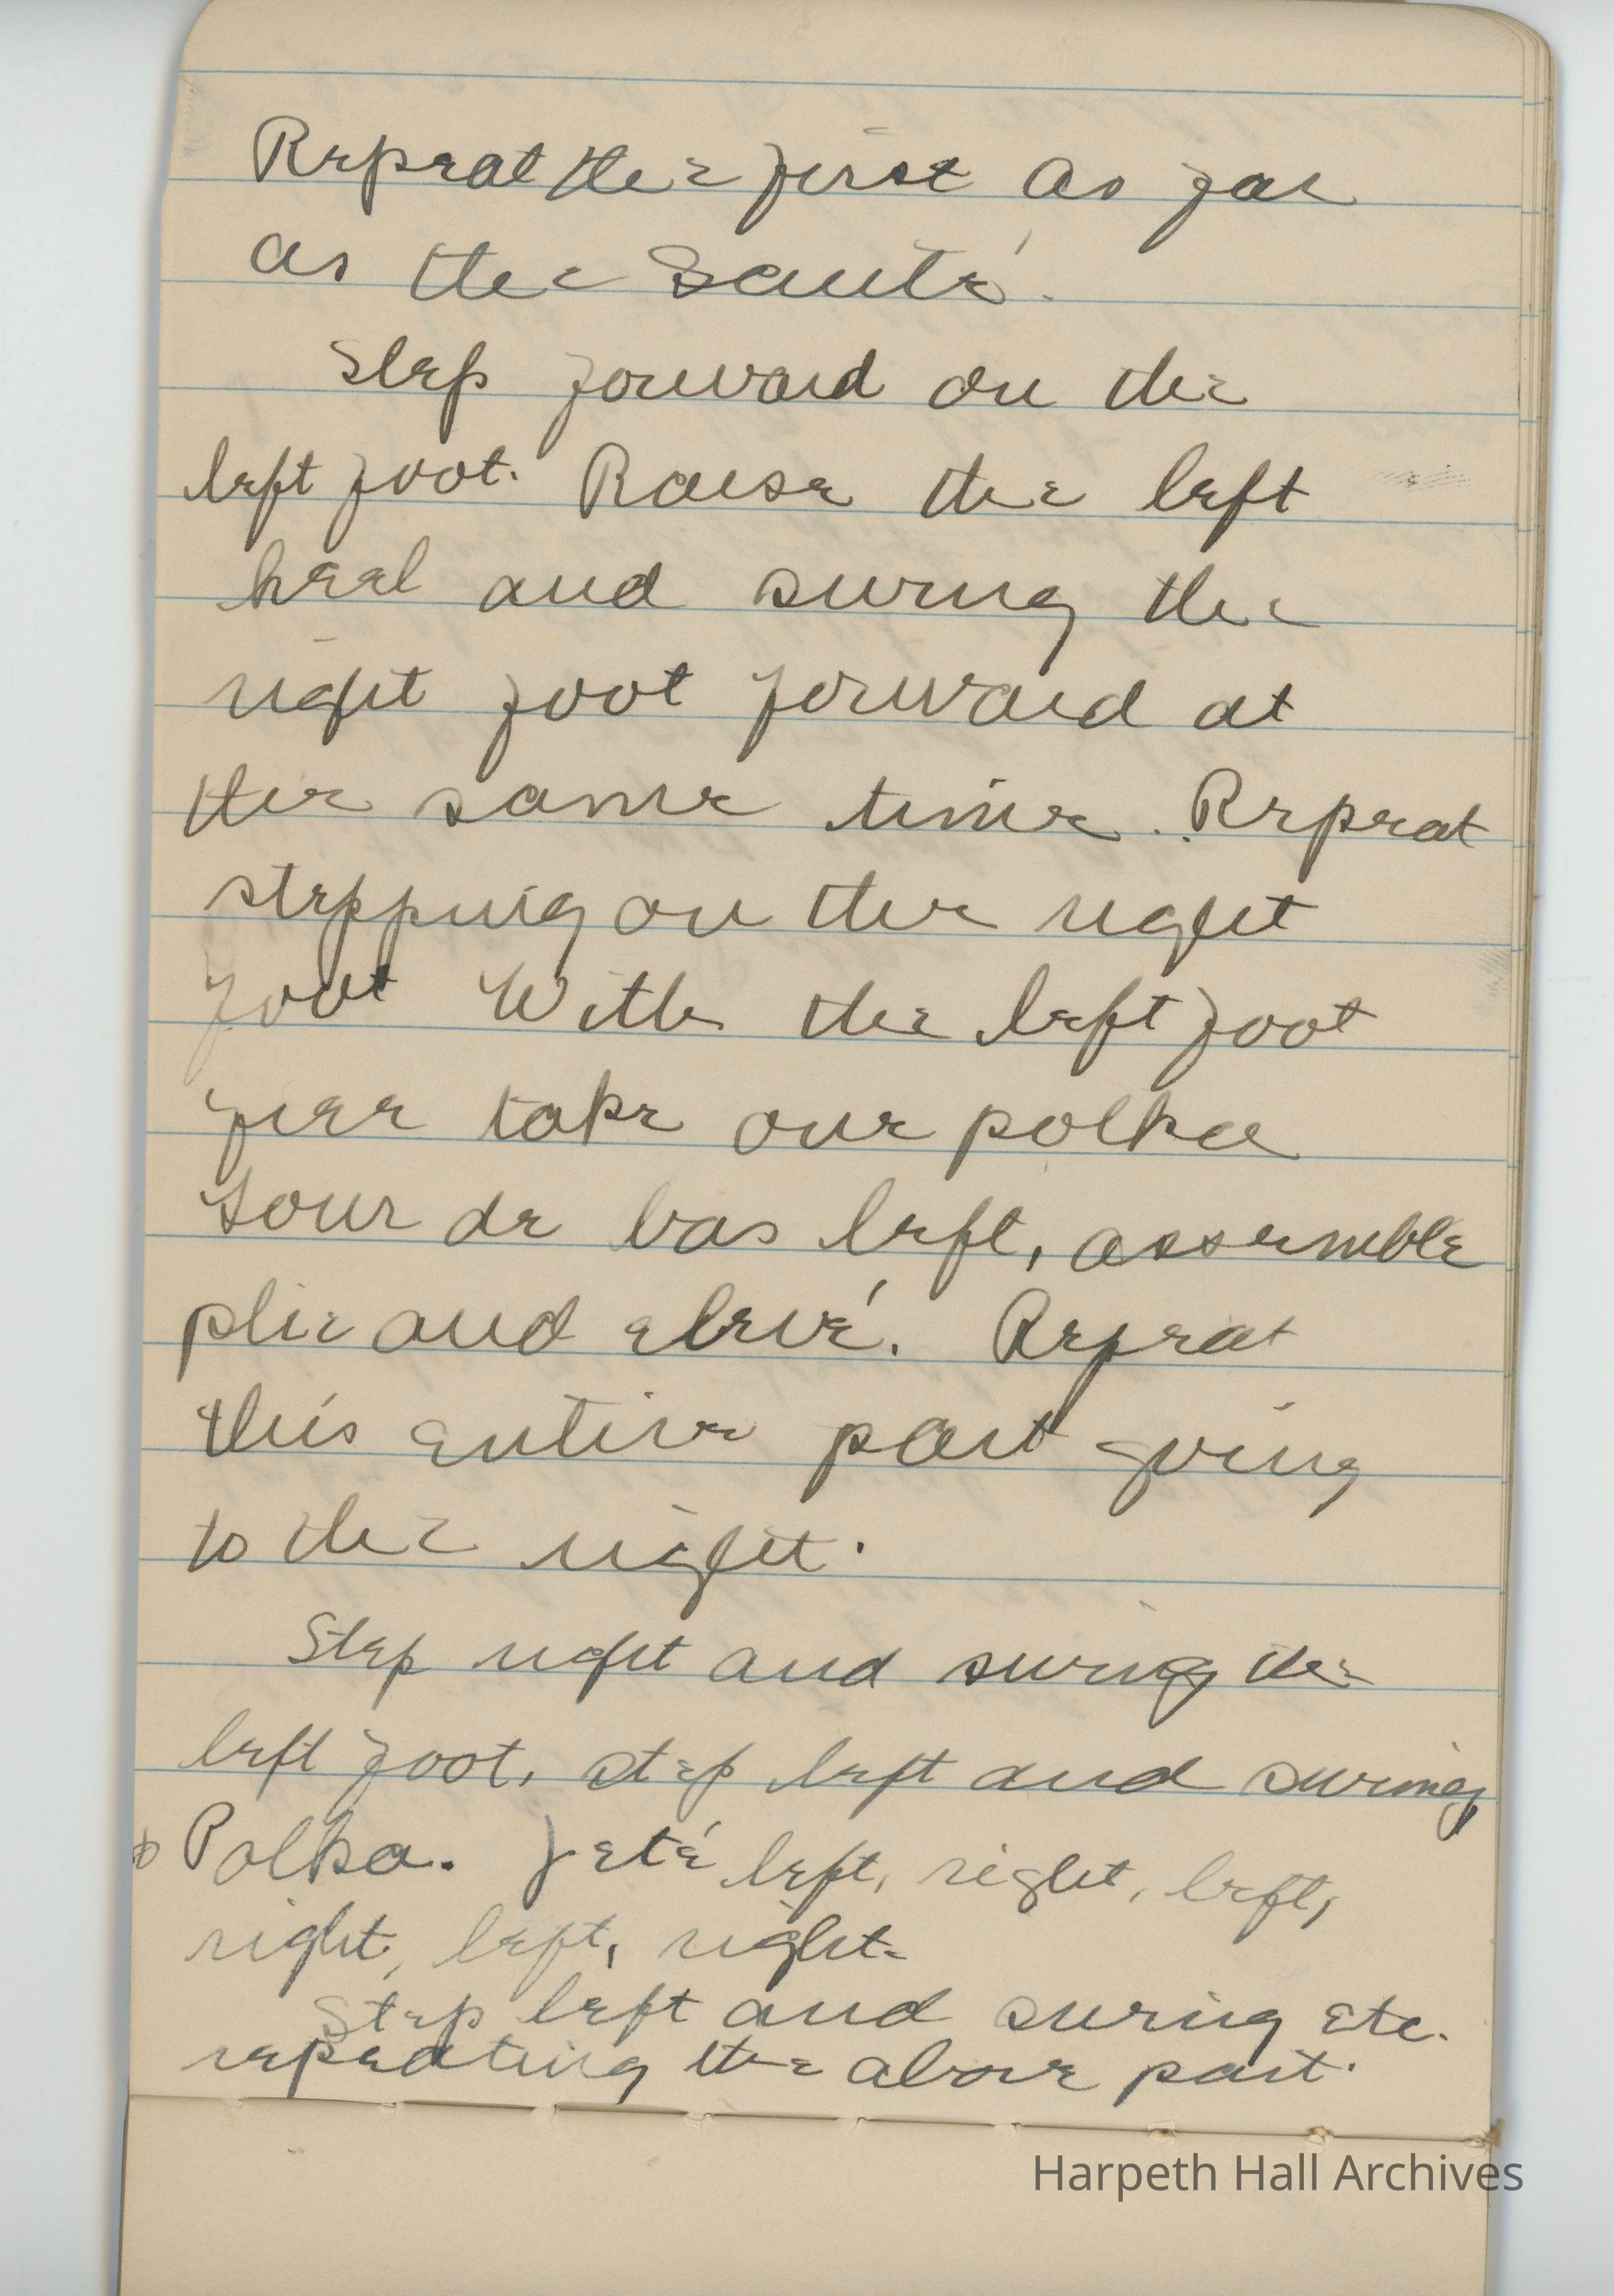 Repeat the first as far
as the Sauté.
Step forward on the
left foot. Raise the left
heel and swing the
right foot forward at
the same time. Repeat
stepping on the right
foot With the left foot
free take one polka
tour de bas left, assemble
plie and elevé. Repeat
this entire part going
to the right.
Step right and swing the
left foot, step left and swing
Polka. Jeté left, right, left,
right, left, right.
Step left and swing etc.
repeating the above part.
Harpeth Hall Archives